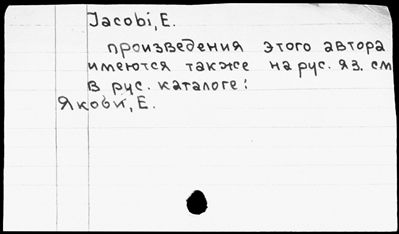 Jacobi, E.
произведения этого автора
имеются также на рус. яз. см
в рус. каталоге:
Якоби, Е.